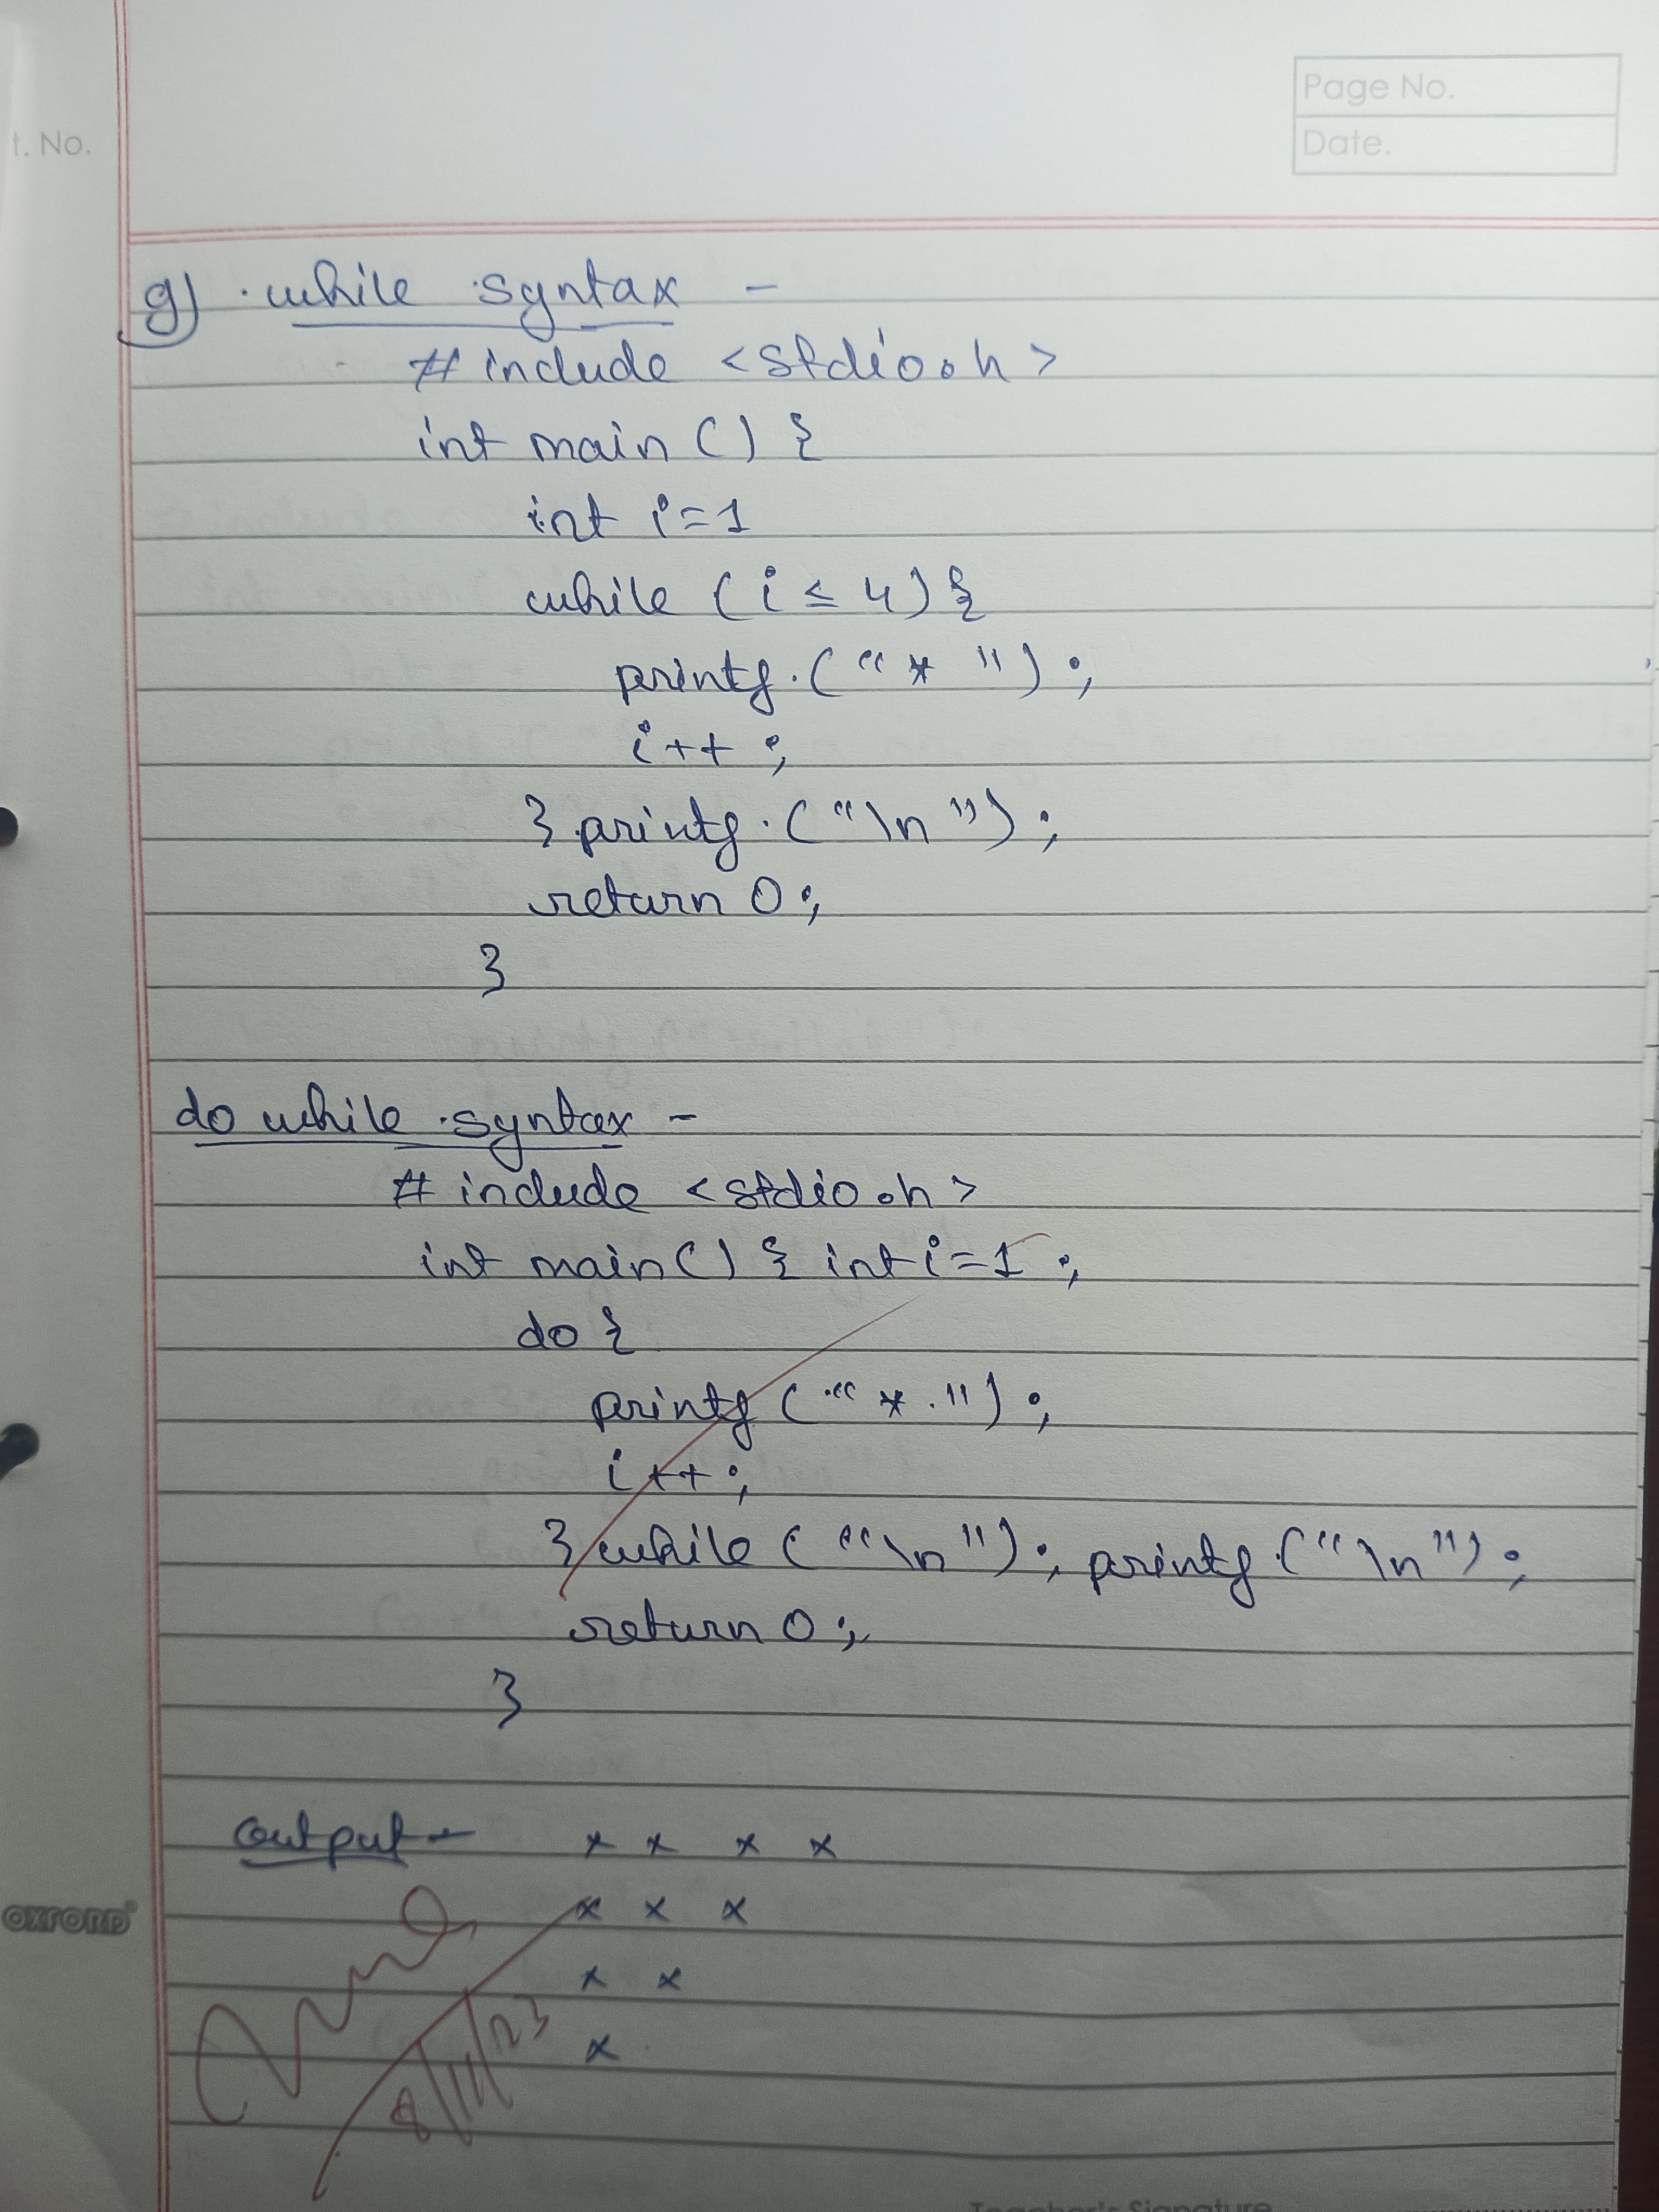 Page No.
t. No.
Date.
g) while syntax -
# include <stdio.h>
int main () {
int i=1
while (i ≤ 4) {
printf. (“ * ”) ;
i++ ;
} printf. (“\n”) ;
return 0 ;
}
do while syntax -
# include <stdio.h>
int main() { int i=1 ;
do {
printf (“ * ”) ;
i++ ;
} while (“\n”) ; printf (“\n”) ;
return 0 ;
}
output - * * * *
* * *
* *
*
OXFORD
8/11/23
Teacher's Signature